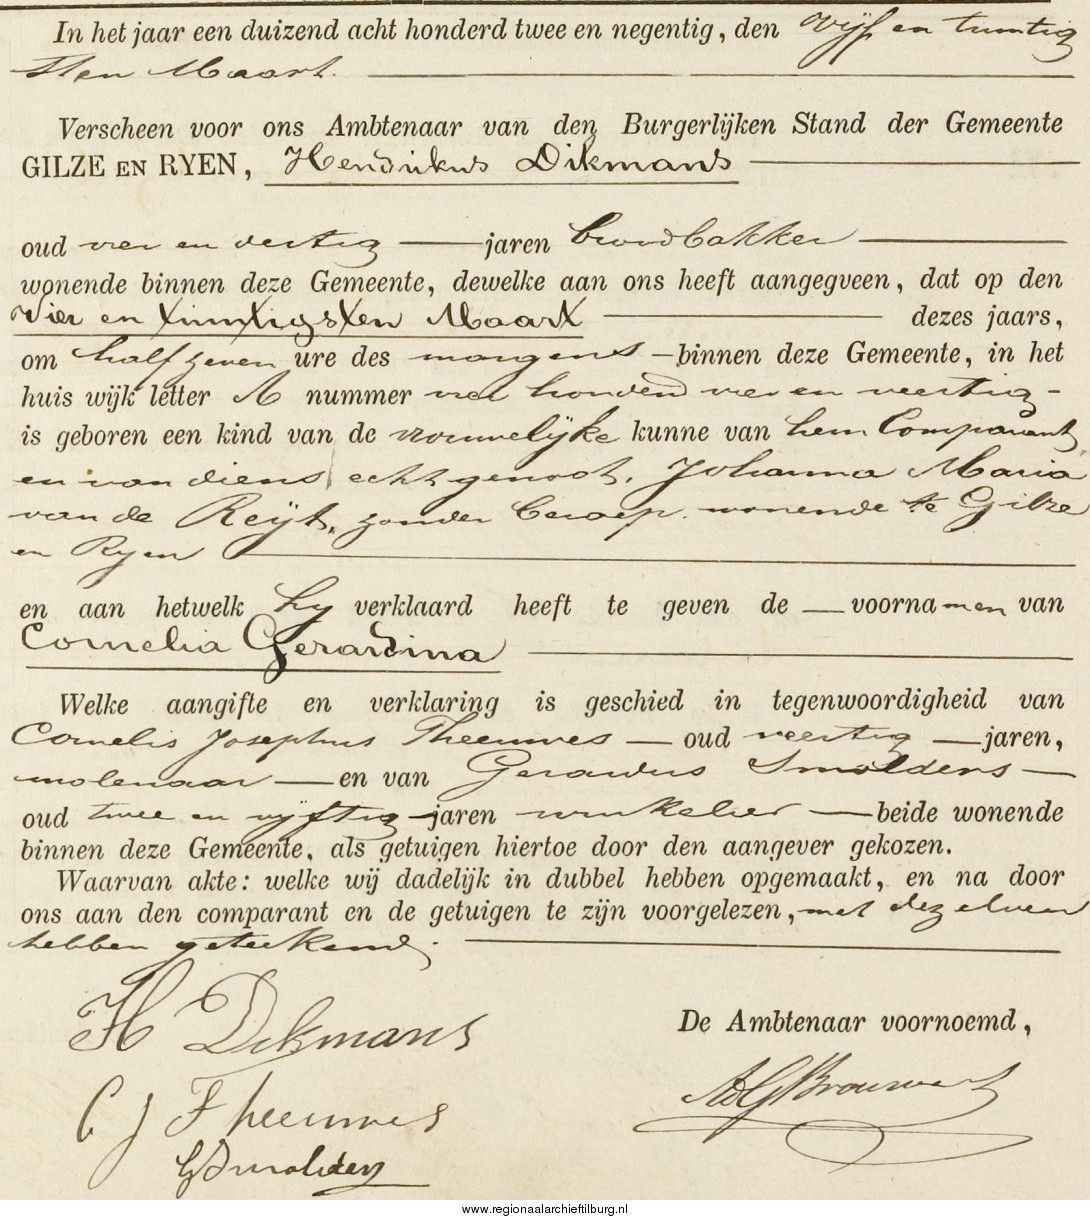 In het jaar een duizend acht honderd twee en negentig, den vijf en twintig
sten Maart.
Verscheen voor ons Ambtenaar van den Burgerlijken Stand der Gemeente
GILZE EN RYEN, Hendrikus Dikmans
oud vier en dertig jaren broodbakker
wonende binnen deze Gemeente, dewelke aan ons heeft aangegveen, dat op den
Vier en twintigsten Maart dezes jaars,
om half zeven ure des morgens binnen deze Gemeente, in het
huis wijk letter A nummer vier honderd vier en veertig
is geboren een kind van de vrouwelijke kunne van hem Comparant
en van diens echtgenoot, Johanna Maria
van de Reijt, zonder beroep wonende te Gilze
en Ryen
en aan hetwelk hy verklaard heeft te geven de voornamen van
Cornelia Gerardina
Welke aangifte en verklaring is geschied in tegenwoordigheid van
Cornelis Josephus Theeuwes oud veertig jaren,
molenaar en van Gerardus Smolders
oud twee en vijftig jaren winkelier beide wonende
binnen deze Gemeente, als getuigen hiertoe door den aangever gekozen.
Waarvan akte: welke wij dadelijk in dubbel hebben opgemaakt, en na door
ons aan den comparant en de getuigen te zijn voorgelezen, met dezelven
hebben geteekend.
H Dikmans
De Ambtenaar voornoemd,
Brouwers
C J Theeuwes
G Smolders
www.regionaalarchieftilburg.nl